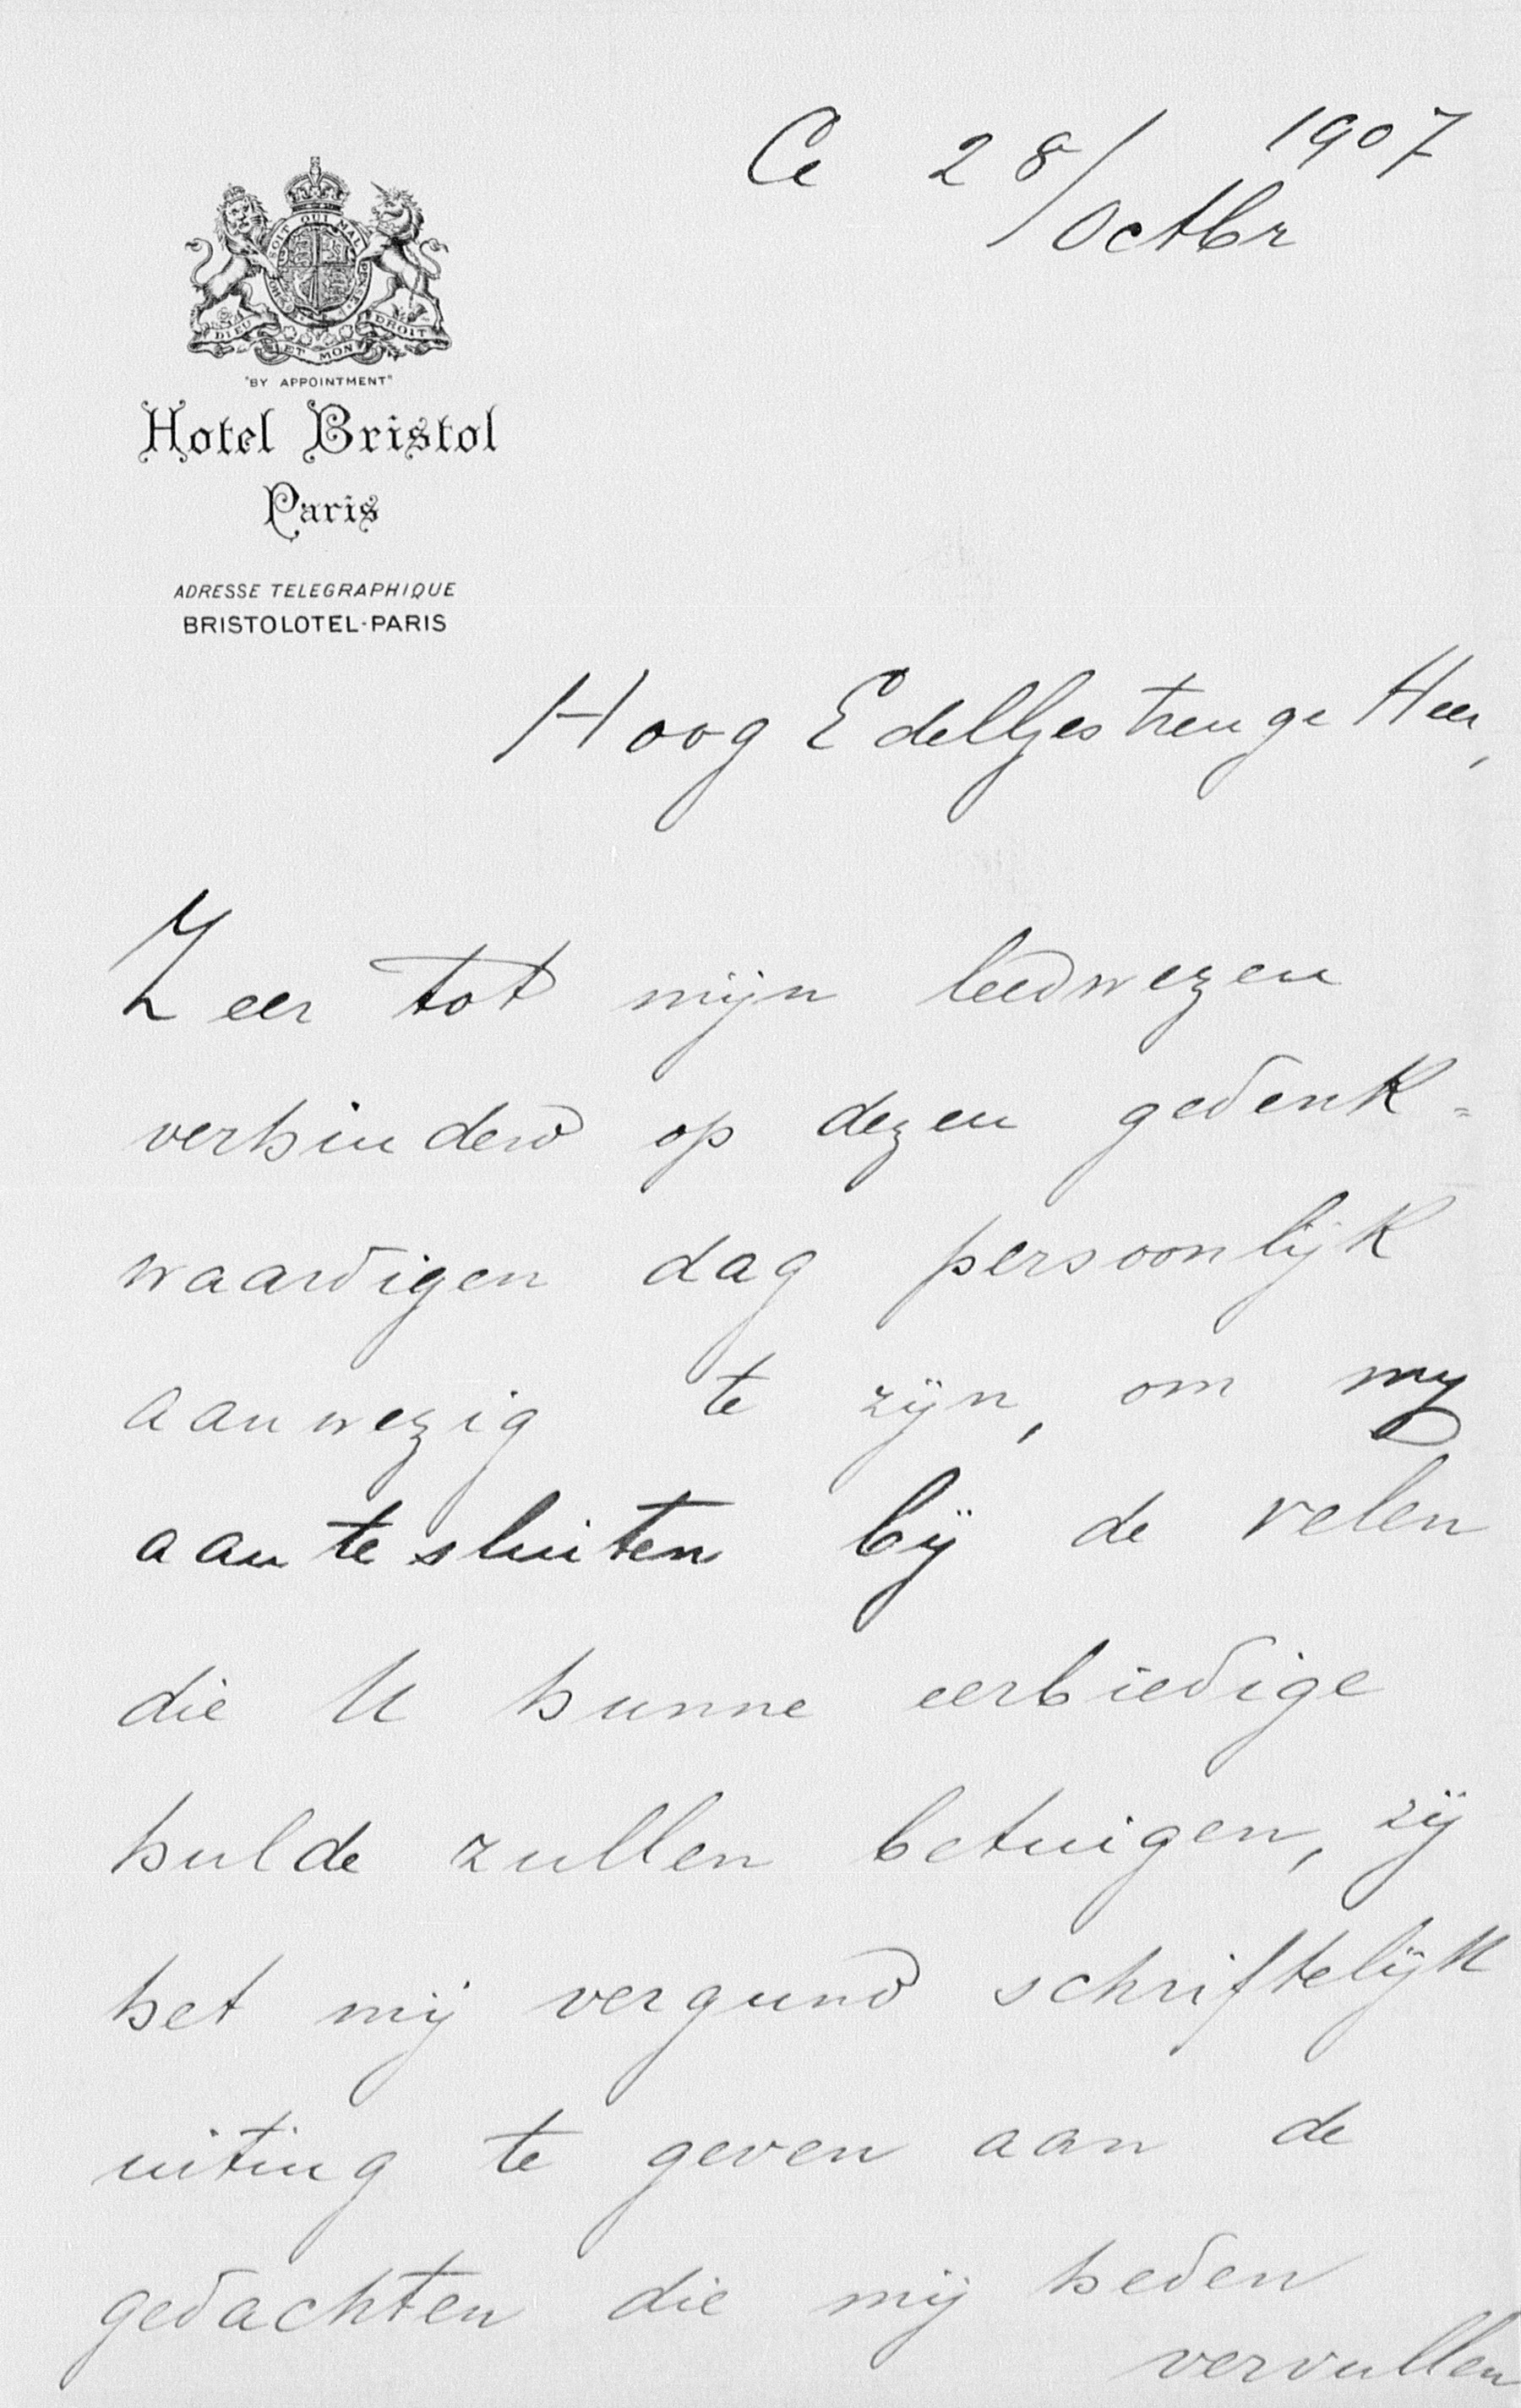 Ce 28/Octbr 1907
HONI SOIT QUI MAL Y PENSE
DIEU ET MON DROIT
"BY APPOINTMENT"
Hotel Bristol
Paris
ADRESSE TELEGRAPHIQUE
BRISTOLOTEL-PARIS
Hoog EdelGestrenge Heer,
Zeer tot mijn leedwezen
verhinderd op dezen gedenk=
waardigen dag persoonlijk
aanwezig te zijn, om mij
aan te sluiten bij de velen
die U hunne eerbiedige
hulde zullen betuigen, zij
het mij vergund schriftelijk
uiting te geven aan de
gedachten die mij heden
vervullen